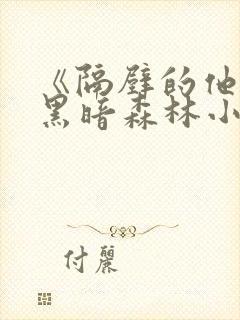 《隔壁的他
黑暗森林小
付丽